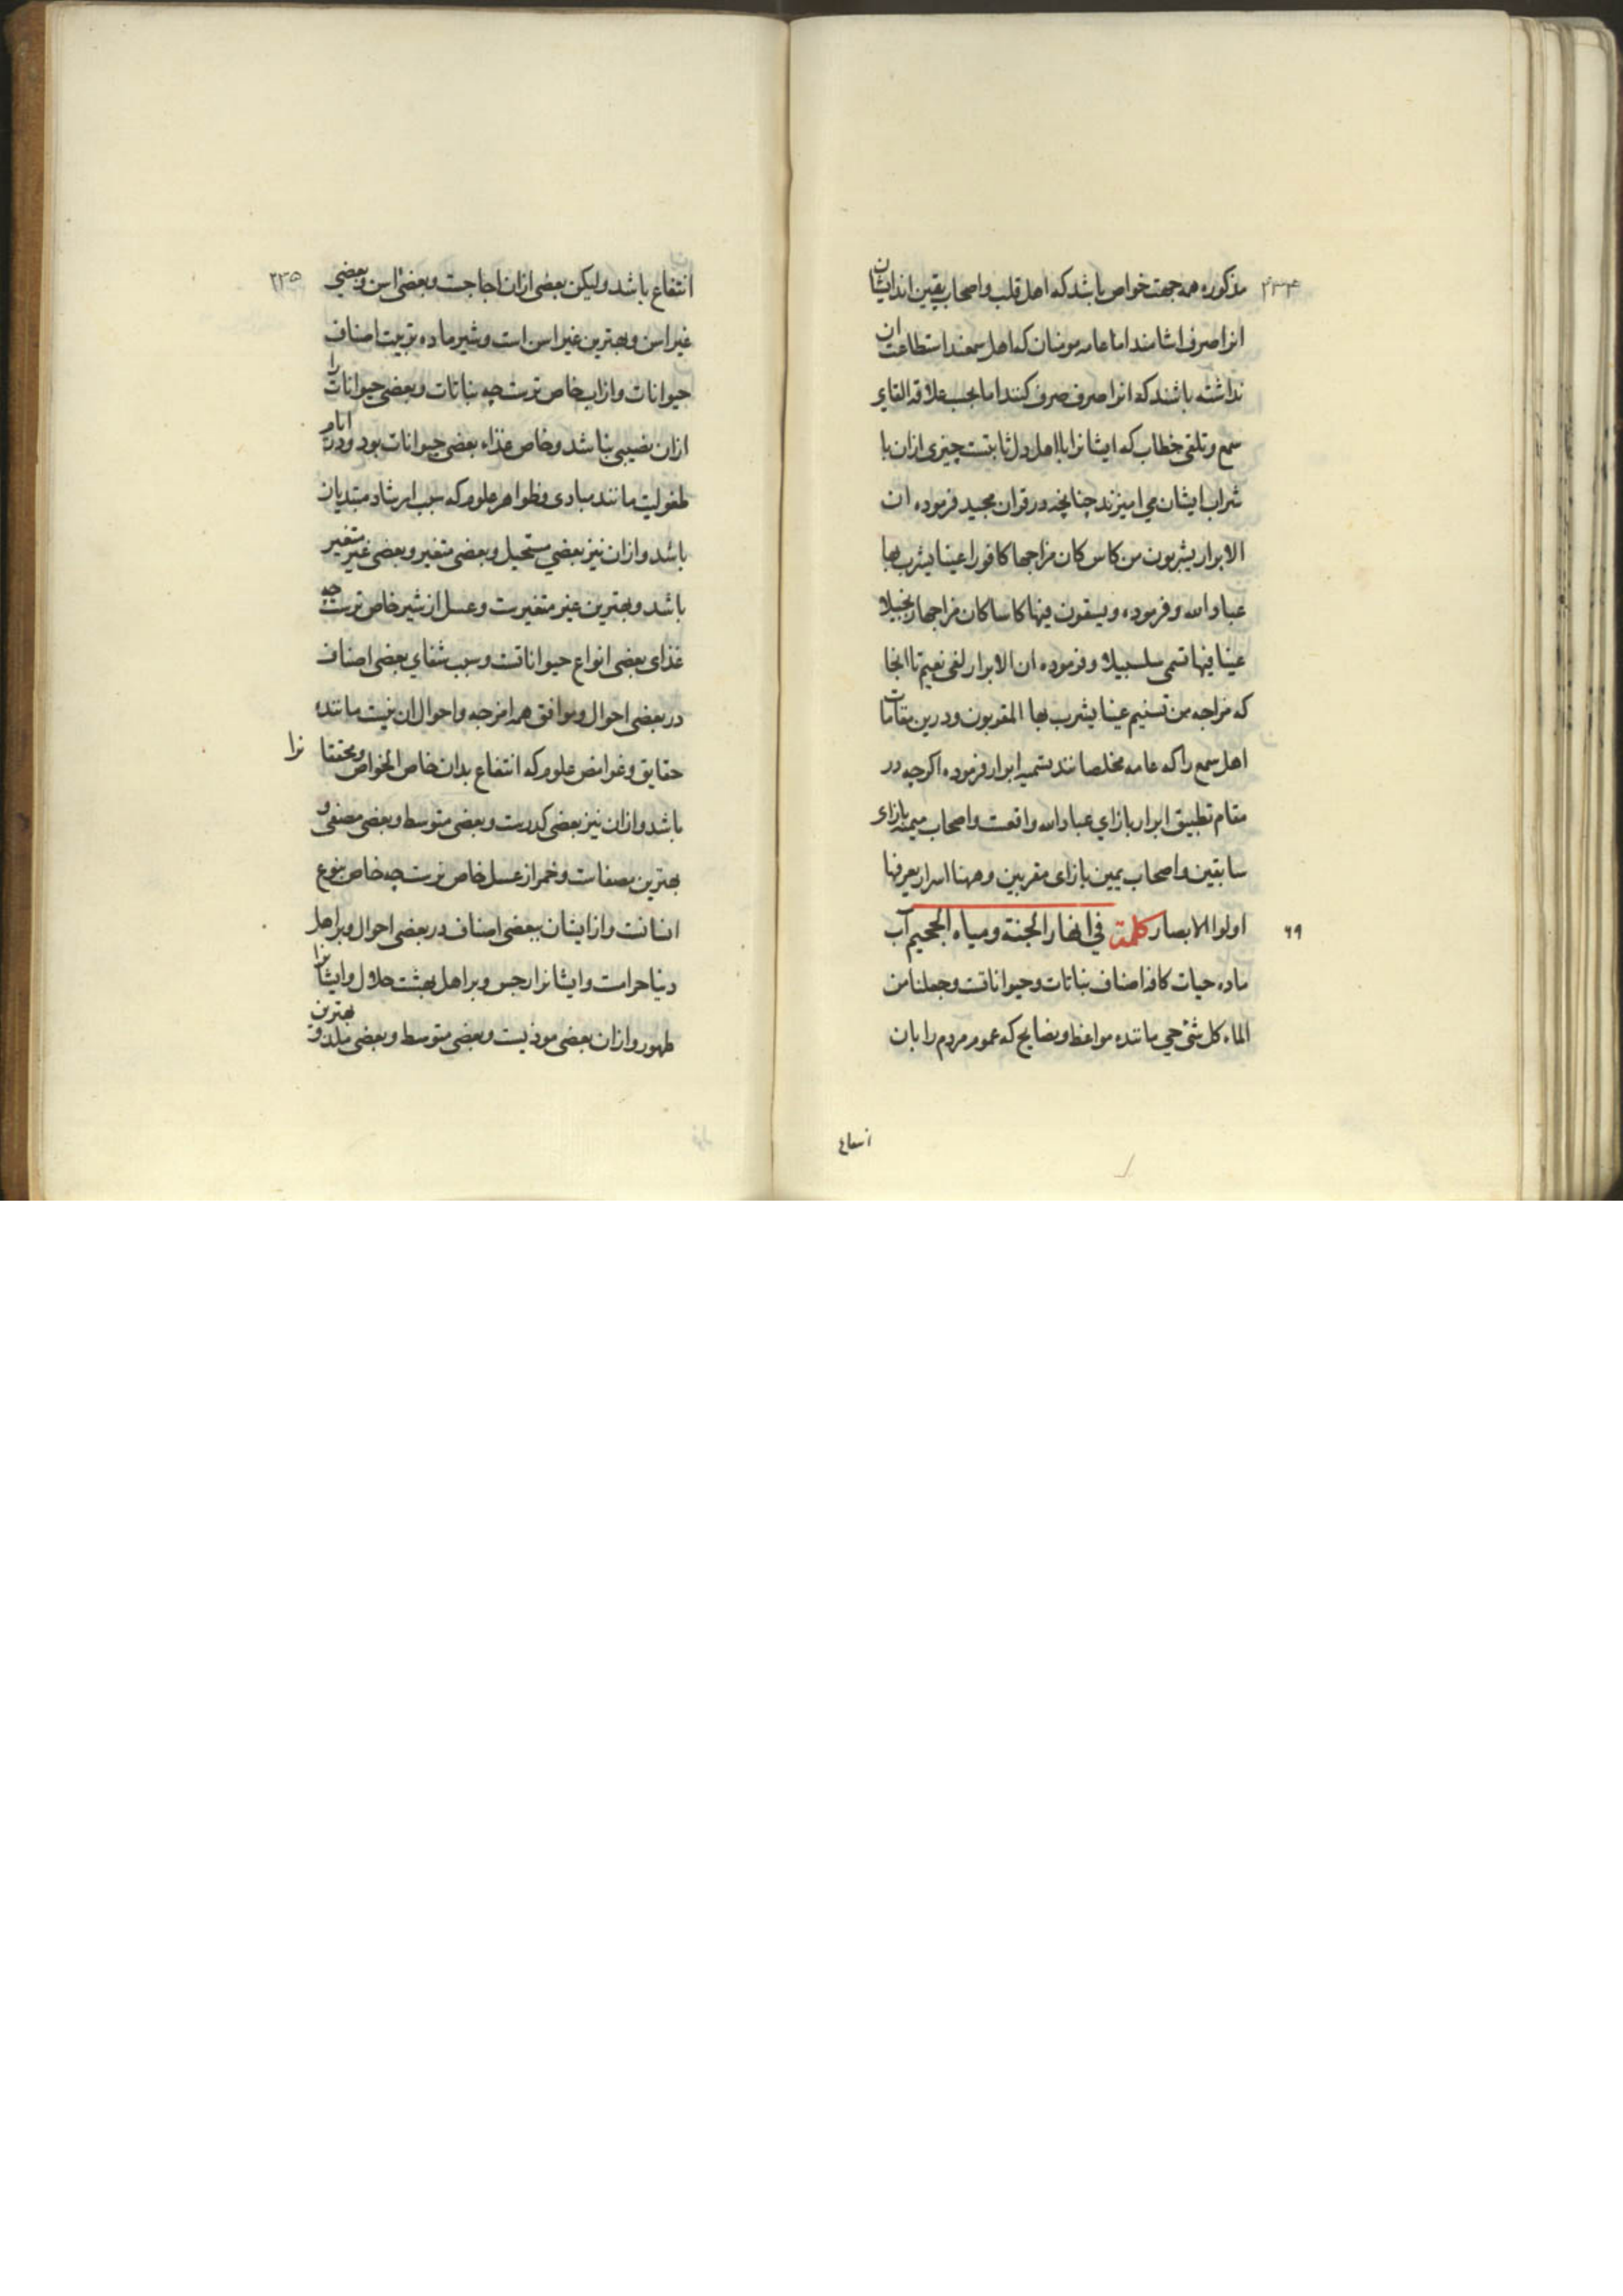 ۲۳۴
مذکوره همه جهت خواص باشد که اهل قلب و اصحاب یقین اند ایشان
انرا صرف اشامند اما عامه مومنان که اهل سمعند استطاعت ان
نداشته باشند که انرا صرف صرف کنند اما بحسب علاقه القای
سمع و تلقی خطاب که ایشانرا با اهل دل ثابتست چیزی ازان با
شراب ایشان می امیزند چنانچه در قران مجید فرموده ان
الابرار یشربون من کاس کان مزاجها کافورا عینا یشرب بها
عباد الله و فرموده و یسقون فیها کاسا کان مزاجها زنجبیلا
عینا فیها تسمی سلسبیلا و فرموده ان الابرار لفی نعیم تا انجا
که مزاجه من تسنیم عینا یشرب بها المقربون و درین مقامات
اهل سمع را که عامه مخلصانند بتسمیه ابرار فرموده اکرچه در
مقام تطبیق ابرار بازای عباد الله واقعست و اصحاب میمنه بازای
سابقین و اصحاب یمین بازای مقربین و ههنا اسرار یعرفها
۶۹
اولوا الابصار کلمة فی انهار الجنة و میاه الجحیم آب
ماده حیات کافه اصناف نباتات و حیواناتست و جعلنا من
الماء کل شئ حی مانند مواعظ و نصایح که عموم مردم را بان
انتفاع
۲۳۵
انتفاع باشد ولیکن بعضی ازان اجاجست و بعضی اسن و بعضی
غیر اسن و بهترین غیر اسن است و شیر ماده تربیت اصناف
حیوانات و از اب خاص ترست چه نباتات و بعضی حیوانات را
ازان نصیبی نباشد و خاص غذاء بعضی حیوانات بود و در ایام
طفولیت مانند مبادی و ظواهر علوم که سبب ارشاد مبتدیان
باشد و ازان نیز بعضی مستحیل و بعضی متغیر و بعضی غیر متغیر
باشد و بهترین غیر متغیرست و عسل از شیر خاص ترست چه
غذای بعضی انواع حیواناتست و سبب شفای بعضی اصناف
در بعضی احوال و موافق همه امزجه و احوال ان نیست مانند
حقایق و غوامض علوم که انتفاع بدان خاص الخواص و محققانرا
باشد و ازان نیز بعضی کدرست و بعضی متوسط و بعضی مصفی و
بهترین مصفاست و خمر از عسل خاص ترست چه خاص بنوع
انسانست و از ایشان ببعضی اصناف در بعضی احوال و بر اهل
دنیا حرامست و ایشانرا رجس و بر اهل بهشت حلال و ایشانرا
طهور و ازان بعضی موذیست و بعضی متوسط و بعضی ملذ و بهترین